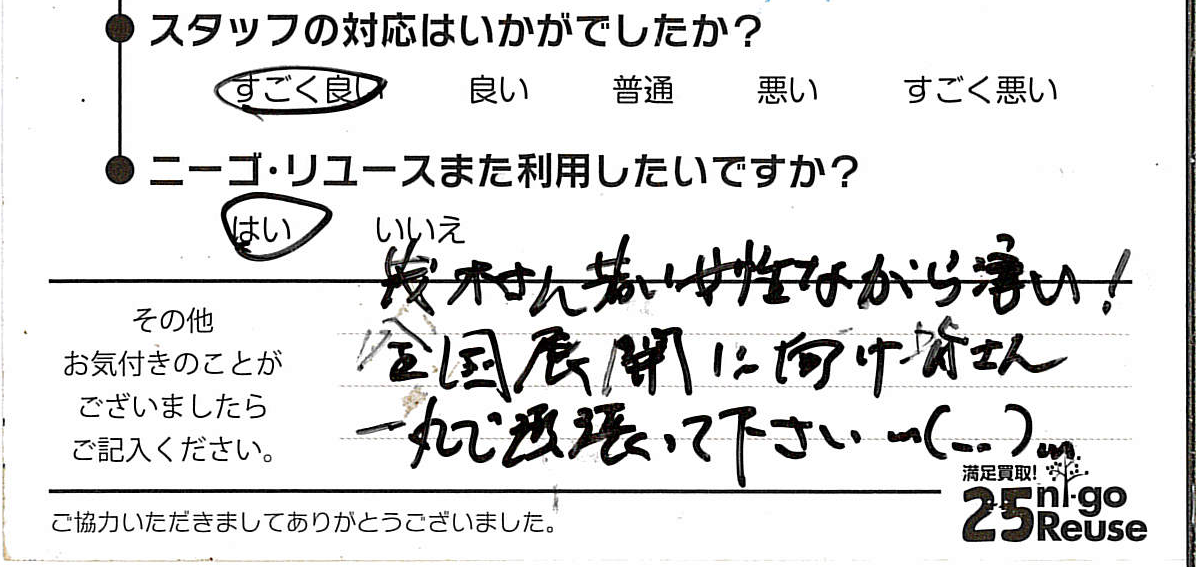 スタッフの対応はいかがでしたか?
すごく良い 良い 普通 悪い すごく悪い
ニーゴ・リユースまた利用したいですか?
はい いいえ
茂木さん若い女性ながら凄い!
全国展開に向け皆さん
一丸で頑張って下さいm(_ _)m
その他
お気付きのことが
ございましたら
ご記入ください。
満足買取!
25 ni-go
Reuse
ご協力いただきましてありがとうございました。